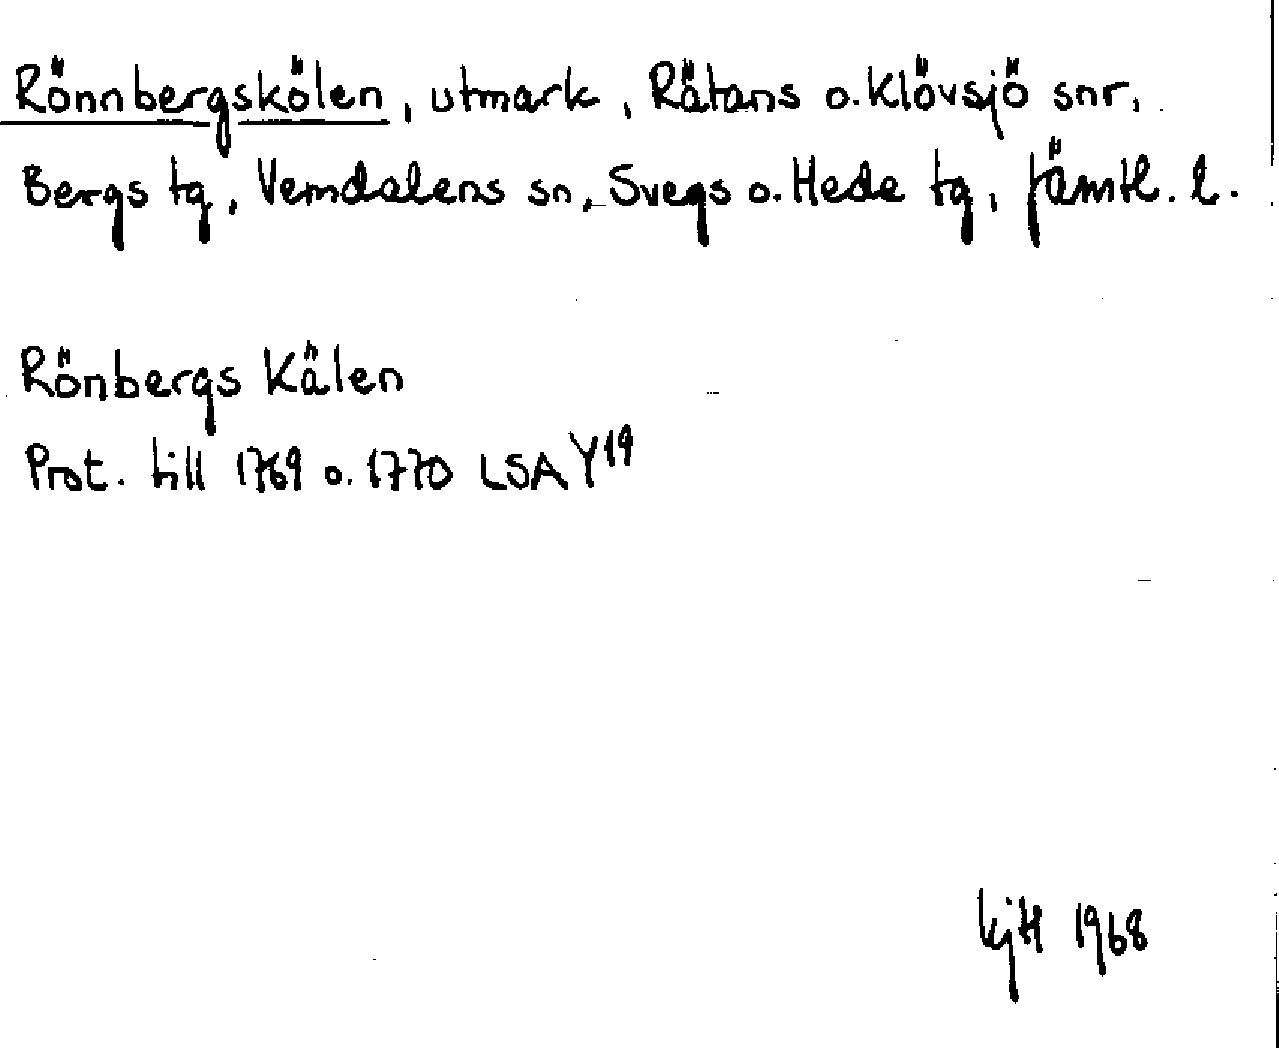 Rönnbergskölen, utmark, Rätans o. Klövsjö snr,
Bergs tg, Vemdalens sn, Svegs o. Hede tg, Jämtl. l.
Rönbergs Kälen
Prot. till 1769 o. 1770 LSA Y19
KjH 1968